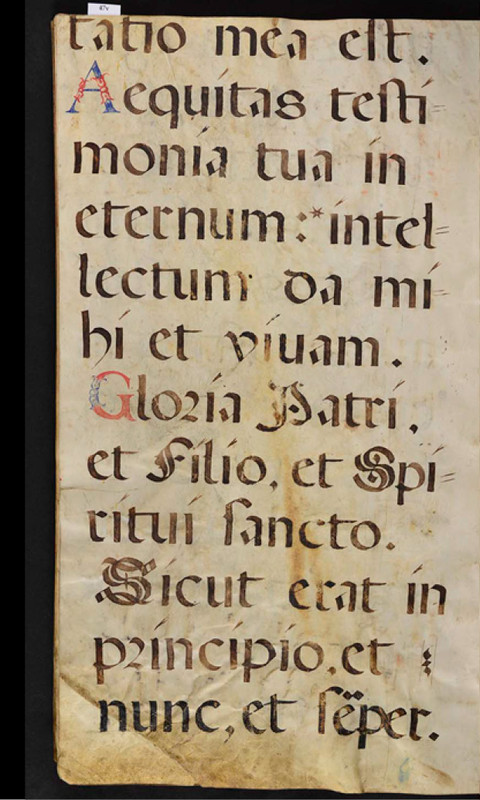 tatio mea est.
Aequitas testi=
monia tua in
eternum:*intel=
lectum da mi=
hi et viuam.
Gloria Patri,
et Filio, et Spi=
ritui sancto.
Sicut erat in
principio, et
nunc, et sẽper.